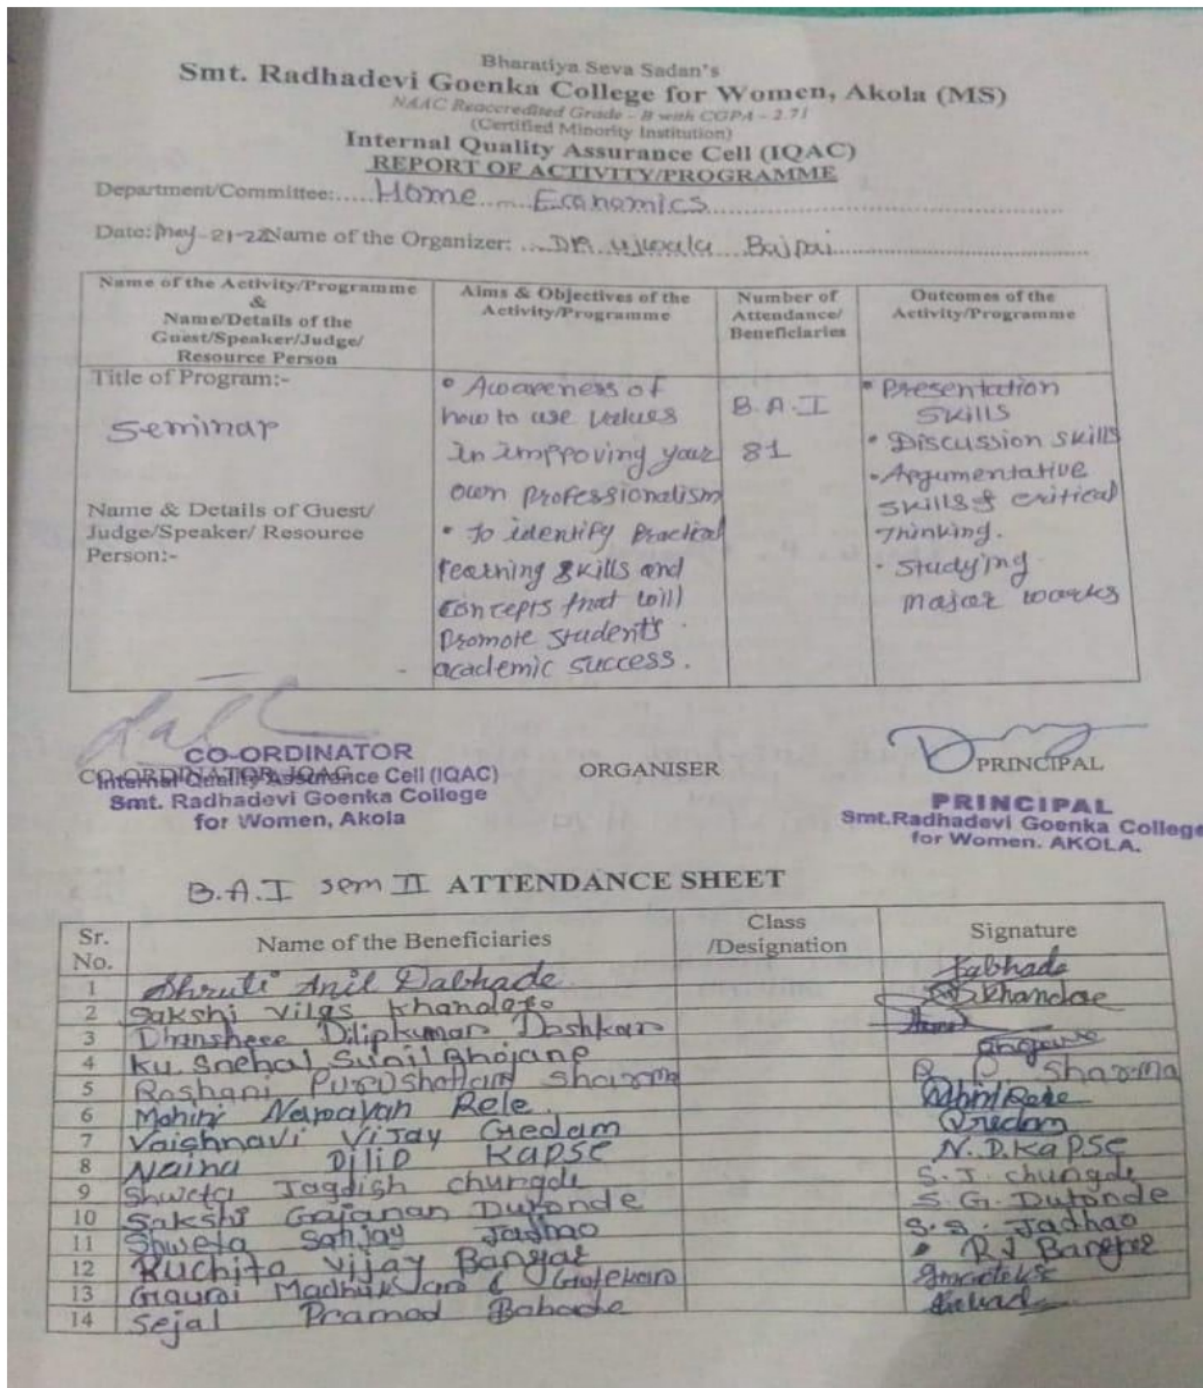 Bharatiya Seva Sadan's
Smt. Radhadevi Goenka College for Women, Akola (MS)
NAAC Reaccredited Grade - B with CGPA - 2.71
(Certified Minority Institution)
Internal Quality Assurance Cell (IQAC)
REPORT OF ACTIVITY/PROGRAMME
Department/Committee:.....Home Economics
Date: May-21-22 Name of the Organizer: ....DR. Ujwala Bajpai
Name of the Activity/Programme
&
Name/Details of the
Guest/Speaker/Judge/
Resource Person
Aims & Objectives of the
Activity/Programme
Number of
Attendance/
Beneficiaries
Outcomes of the
Activity/Programme
Title of Program:-
Seminar
Name & Details of Guest/
Judge/Speaker/ Resource
Person:-
• Awareness of
how to use values
In improving your
own professionalism
• To identify Practical
learning skills and
concepts that will
Promote student's
academic success.
B.A.I
81
• Presentation
Skills
• Discussion skills
• Argumentative
skills & critical
Thinking.
• Studying
major works
CO-ORDINATOR
CO-ORDINATOR IQAC
Internal Quality Assurance Cell (IQAC)
Smt. Radhadevi Goenka College
for Women, Akola
ORGANISER
PRINCIPAL
PRINCIPAL
Smt.Radhadevi Goenka College
for Women. AKOLA.
B.A.I sem II ATTENDANCE SHEET
Sr. No. Name of the Beneficiaries Class /Designation Signature
1 Shruti Anil Dabhade Dabhade
2 Sakshi Vilas Khandare
3 Dhanshree Dilipkumar Doshkar
4 Ku. Snehal Sunil Bhojane
5 Roshani Purushottam Sharma R P Sharma
6 Mohini Narayan Rele
7 Vaishnavi Vijay Gedam
8 Naina Dilip Kapse N.D.Kapse
9 Shweta Jagdish chungde S.J. chungde
10 Sakshi Gajanan Dutonde S.G. Dutonde
11 Shweta Sanjay Jadhao S.S. Jadhao
12 Ruchita Vijay Bangar
13 Gauri Madhukar
14 Sejal Pramod